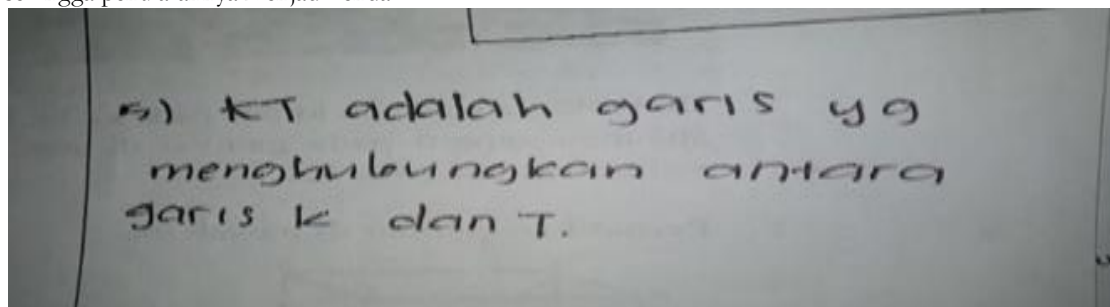 5) KT adalah garis yg
menghubungkan antara
garis k dan T.